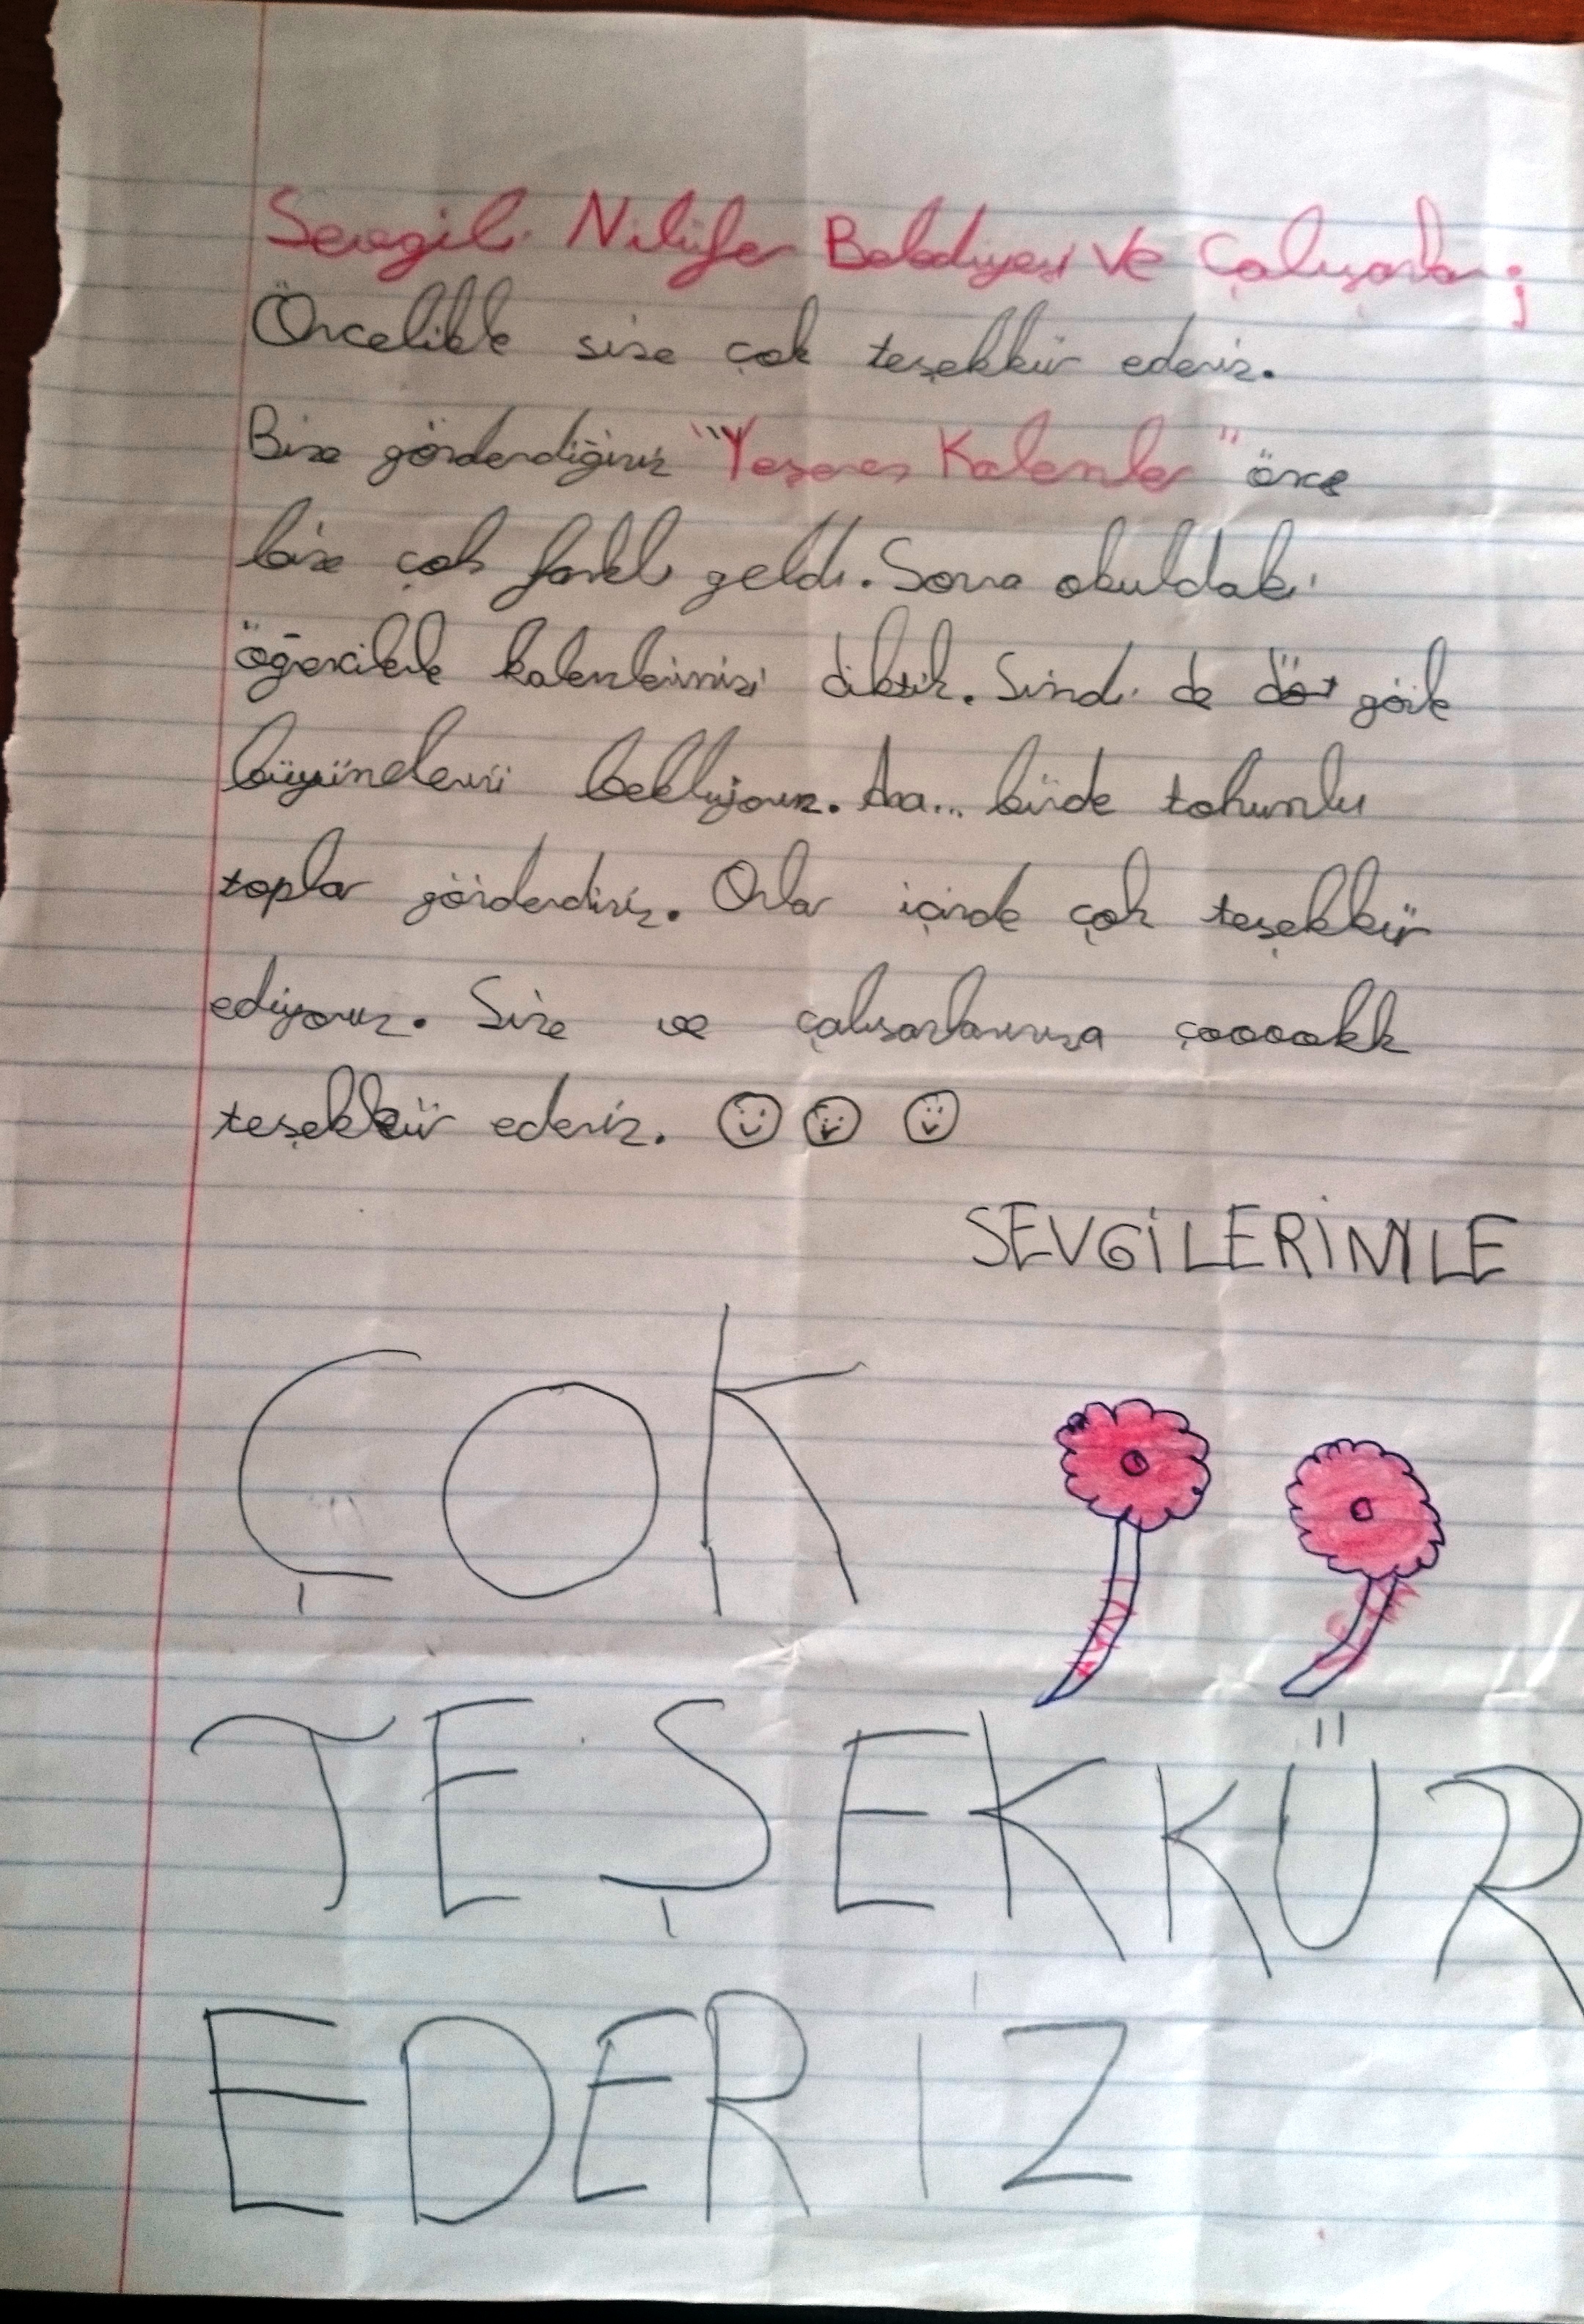 Sevgili Nilüfer Belediyesi ve Çalışanlar;
Öncelikle size çok teşekkür ederiz.
Bize gönderdiğiniz "Yeşeren Kalemler" önce
bize çok farklı geldi. Sonra okuldaki
öğrencilerle kalemlerimizi diktik. Şimdi de dört gözle
büyümelerini bekliyoruz. Aaa... birde tohumlu
toplar gönderdiniz. Onlar içinde çok teşekkür
ediyoruz. Size ve çalışanlarınıza çooookk
teşekkür ederiz.
SEVGİLERİMLE
ÇOK
TEŞEKKÜR
EDERİZ